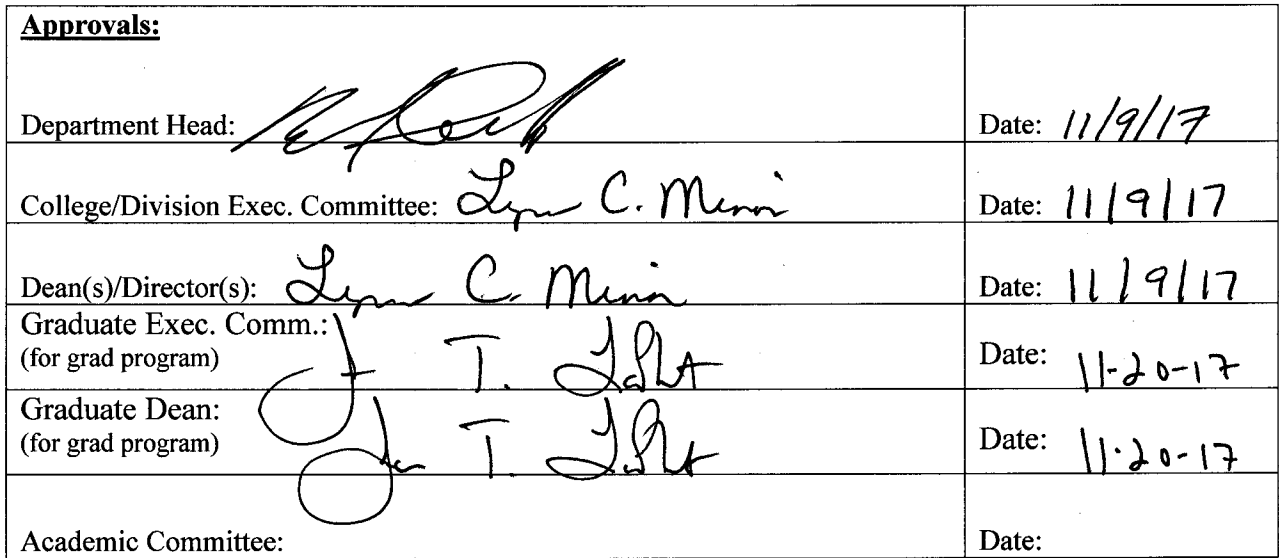 Approvals:
Department Head: Date: 11/9/17
College/Division Exec. Committee: Lynn C. Minor Date: 11/9/17
Dean(s)/Director(s): Lynn C. Minor Date: 11/9/17
Graduate Exec. Comm.:
(for grad program) T. Date: 11-20-17
Graduate Dean:
(for grad program) T. Date: 11-20-17
Academic Committee: Date: